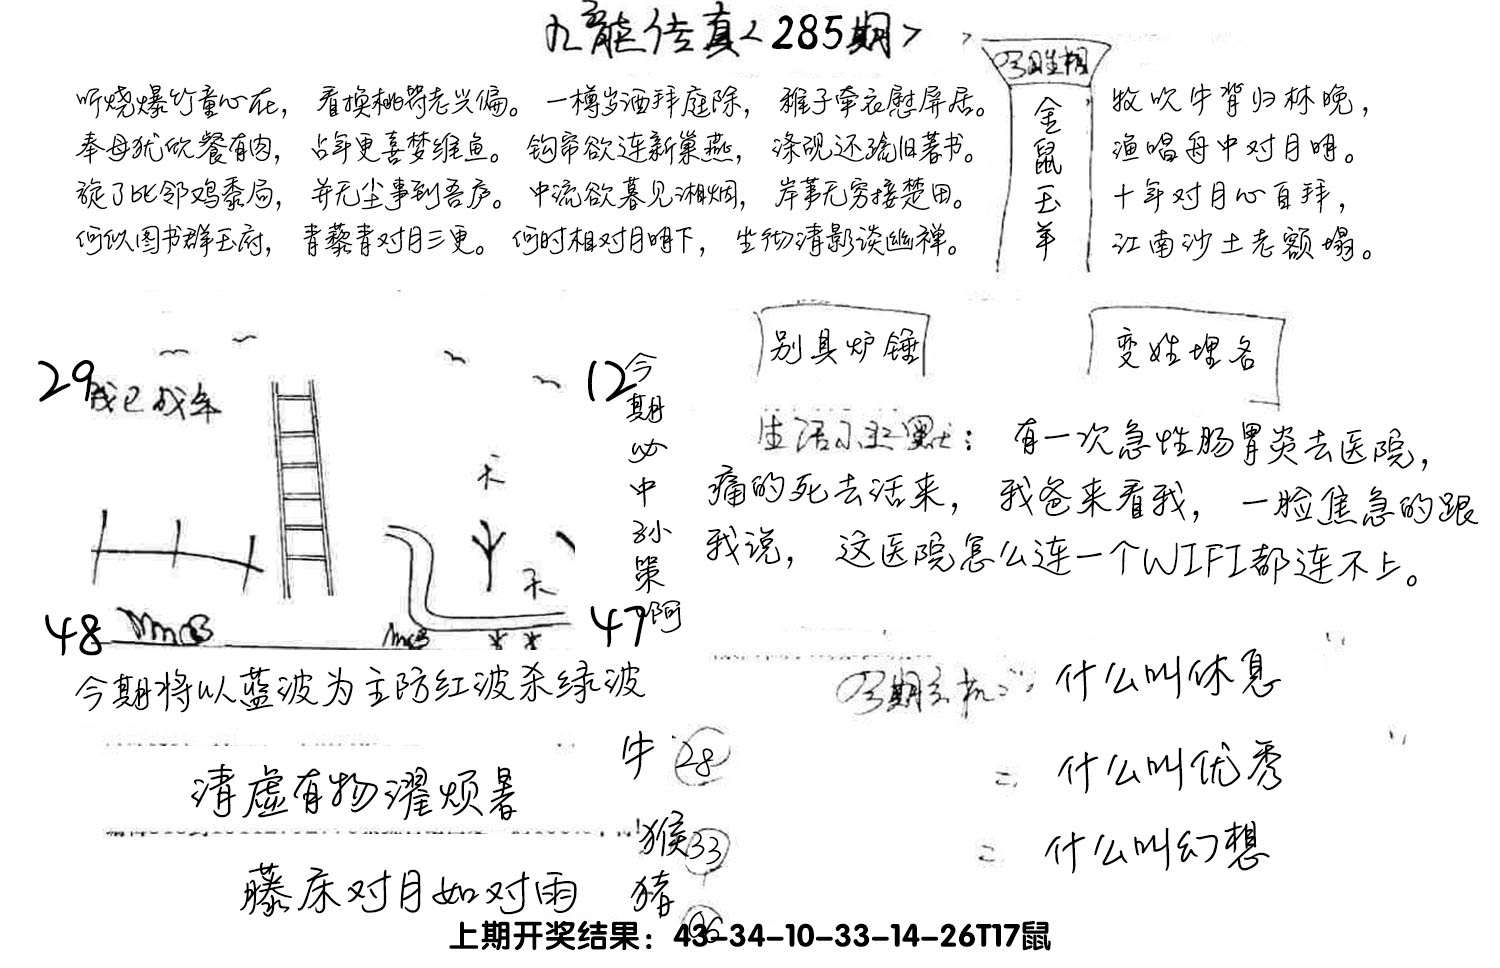 九龙传真<285期>
听烧爆竹童心在，看换桃符老兴偏。一樽岁酒拜庭除，稚子牵衣慰屏居。
奉母犹欣餐有肉，占年更喜梦维鱼。钩帘欲连新巢燕，涤砚还疏旧著书。
旋了比邻鸡黍局，并无尘事到吾庐。中流欲暮见湘烟，岸苇无穷接楚田。
何似图书群玉府，青藜青对月三更。何时相对月明下，坐彻清影谈幽禅。
今日生相
金鼠玉羊
牧吹牛背归林晚，
渔唱舟中对月明。
十年对月心自拜，
江南沙土老额塌。
29
12
48
47
今期必中孙策啊
别具炉锤
变姓埋名
有一次急性肠胃炎去医院，
痛的死去活来，我爸来看我，一脸焦急的跟
我说，这医院怎么连一个WIFI都连不上。
今期将以蓝波为主防红波杀绿波
清虚有物濯烦暑
藤床对月如对雨
牛 28
猴 33
猪
今期玄机：什么叫休息
二 什么叫优秀
二 什么叫幻想
上期开奖结果：43-34-10-33-14-26T17鼠